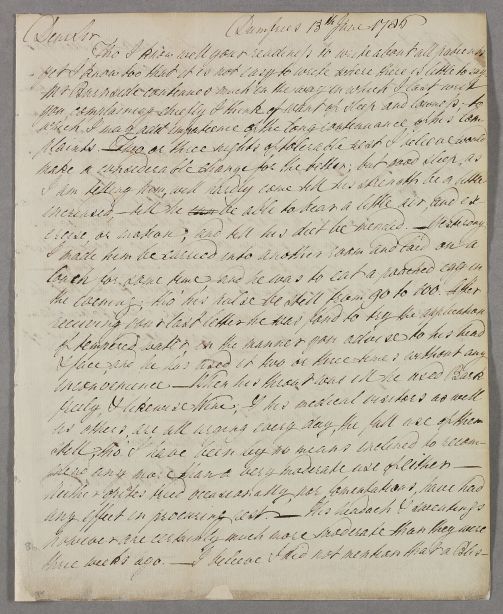 Dear Sir Dumfries 13th June 1786
Tho' I know well your readiness to write about all patients
yet I know too that it is not easy to write where there is little to say
Mr Burnside continues much in the way in which I last wrote
you complaining chiefly I think of want of sleep and lowness; to
which I may add impatience at the long continuance of his com
plaints - two or three nights of tolerable rest I believe would
make a considerable change for the better; but good sleep, as
I am telling him, will hardly come till his strength be a little
increased, - till he be able to bear a little air, and ex
ercise or motion; and till his diet be mended. - Yesterday
I made him be carried into another room and laid on a
Couch for some time and he was to eat a poached egg in
the evening; tho his pulse be still from 90 to 100. After
receiving your last letter he was fond to try the application
of tempered water, in the manner you advise to his head
& face and he has used it two or three times without any
inconvenience - When his throat was ill he used Bark
freely & likewise Wine, & his medical visitors as well
as others, are all urging every day the full use of them
still, tho' I have been by no means inclined to recom
mend any more than a very moderate use of Either -
Neither opiates tried occasionally nor fomentations, have had
any effect in procuring rest - His headach & sweatings
however are certainly much more moderate than they were
three weeks ago. - I believe I did not mention that a Blis-